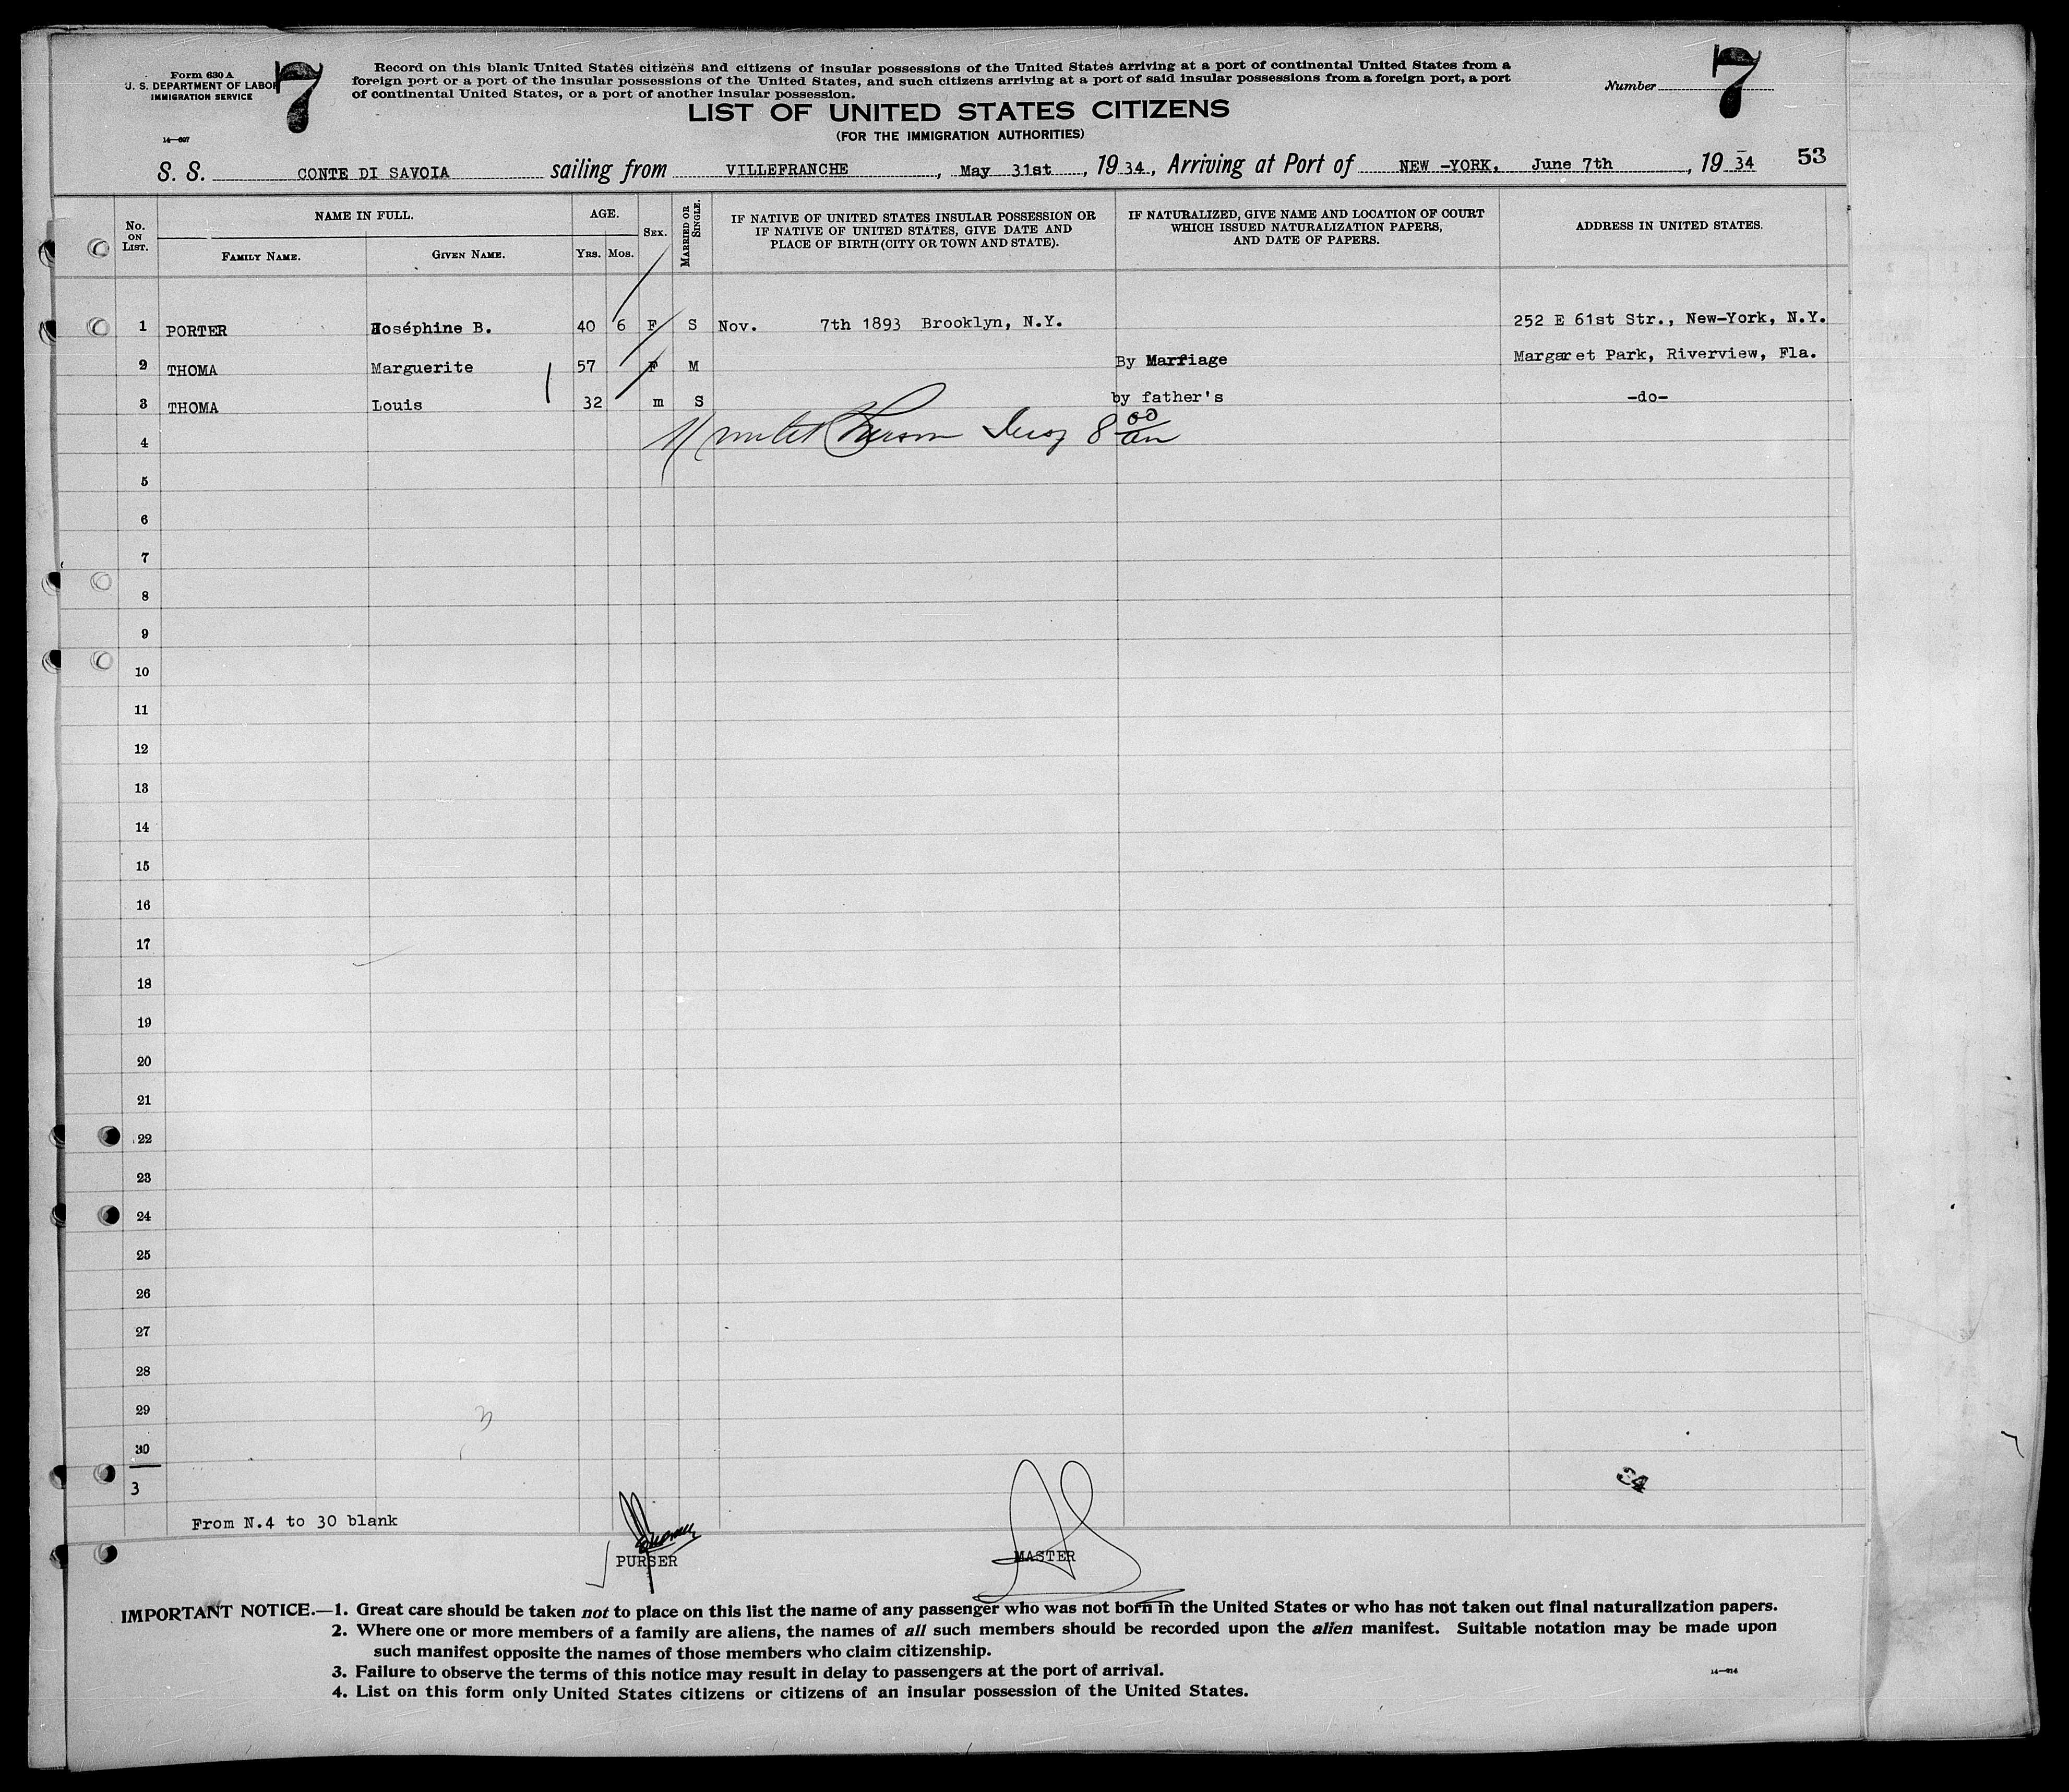 Form 630 A
U. S. DEPARTMENT OF LABOR
IMMIGRATION SERVICE
14—607
7
Record on this blank United States citizens and citizens of insular possessions of the United States arriving at a port of continental United States from a
foreign port or a port of the insular possessions of the United States, and such citizens arriving at a port of said insular possessions from a foreign port, a port
of continental United States, or a port of another insular possession.
Number 7
LIST OF UNITED STATES CITIZENS
(FOR THE IMMIGRATION AUTHORITIES)
S. S. CONTE DI SAVOIA sailing from VILLEFRANCHE, May 31st, 1934, Arriving at Port of NEW -YORK, June 7th, 1934 53
No. ON LIST. NAME IN FULL. FAMILY NAME. GIVEN NAME. AGE. YRS. MOS. SEX. MARRIED OR SINGLE. IF NATIVE OF UNITED STATES INSULAR POSSESSION OR IF NATIVE OF UNITED STATES, GIVE DATE AND PLACE OF BIRTH (CITY OR TOWN AND STATE). IF NATURALIZED, GIVE NAME AND LOCATION OF COURT WHICH ISSUED NATURALIZATION PAPERS, AND DATE OF PAPERS. ADDRESS IN UNITED STATES.
1 PORTER Joséphine B. 40 6 F S Nov. 7th 1893 Brooklyn, N.Y. 252 E 61st Str., New-York, N.Y.
2 THOMA Marguerite 57 F M By Marriage Margaret Park, Riverview, Fla.
3 THOMA Louis 32 m S by father's -do-
4 8 00 am
5
6
7
8
9
10
11
12
13
14
15
16
17
18
19
20
21
22
23
24
25
26
27
28
29
30
3
34
From N.4 to 30 blank
PURSER MASTER
IMPORTANT NOTICE.—1. Great care should be taken not to place on this list the name of any passenger who was not born in the United States or who has not taken out final naturalization papers.
2. Where one or more members of a family are aliens, the names of all such members should be recorded upon the alien manifest. Suitable notation may be made upon
such manifest opposite the names of those members who claim citizenship.
3. Failure to observe the terms of this notice may result in delay to passengers at the port of arrival.
14—614
4. List on this form only United States citizens or citizens of an insular possession of the United States.